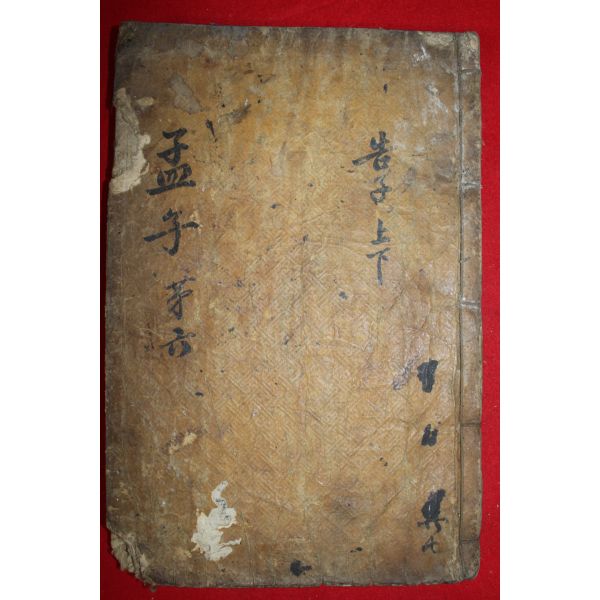 共七
告子 上下
孟子 第六